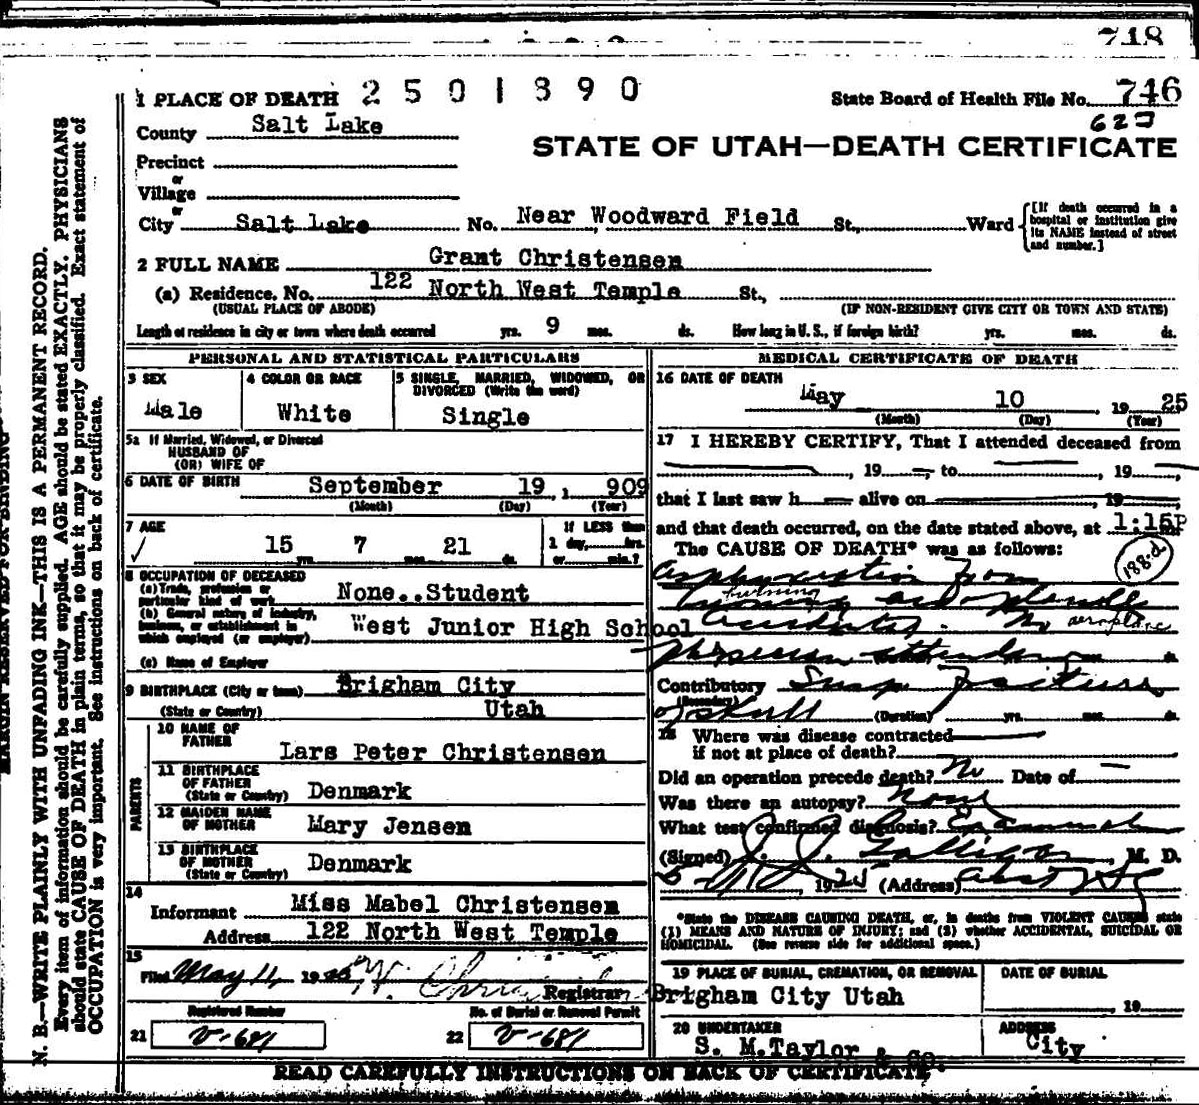 748
1 PLACE OF DEATH 2501390 State Board of Health File No. 746
County Salt Lake 627
STATE OF UTAH—DEATH CERTIFICATE
Precinct
or
Village
or
City Salt Lake No. Near Woodward Field St., Ward [If death occurred in a hospital or institution give its NAME instead of street and number.]
2 FULL NAME Grant Christensen
(a) Residence. No. 122 North West Temple St.,
(USUAL PLACE OF ABODE) (IF NON-RESIDENT GIVE CITY OR TOWN AND STATE)
Length of residence in city or town where death occurred yrs. 9 mos. ds. How long in U. S., if foreign birth? yrs. mos. ds.
PERSONAL AND STATISTICAL PARTICULARS
3 SEX
Male
4 COLOR OR RACE
White
5 SINGLE, MARRIED, WIDOWED, OR
DIVORCED (Write the word)
Single
5a If Married, Widowed, or Divorced
HUSBAND OF
(OR) WIFE OF
6 DATE OF BIRTH September 19, 1909
(Month) (Day) (Year)
7 AGE
15 yrs. 7 mos. 21 ds.
If LESS than
1 day, hrs.
or min.?
8 OCCUPATION OF DECEASED
(a) Trade, profession or
particular kind of work None..Student
(b) General nature of industry,
business, or establishment in
which employed (or employer) West Junior High School
(c) Name of Employer
9 BIRTHPLACE (City or town) Brigham City
(State or Country) Utah
PARENTS
10 NAME OF
FATHER Lars Peter Christensen
11 BIRTHPLACE
OF FATHER
(State or Country) Denmark
12 MAIDEN NAME
OF MOTHER Mary Jensen
13 BIRTHPLACE
OF MOTHER
(State or Country) Denmark
14
Informant Miss Mabel Christensen
Address 122 North West Temple
15
Filed May 11, 1925
Registrar
Registered Number No. of Burial or Removal Permit
21 V-681 22 V-681
MEDICAL CERTIFICATE OF DEATH
16 DATE OF DEATH
May 10 1925
(Month) (Day) (Year)
17 I HEREBY CERTIFY, That I attended deceased from
, 19 to , 19
that I last saw h alive on 19
and that death occurred, on the date stated above, at 1:15P
The CAUSE OF DEATH* was as follows:
188-d
Asphyxiation from
burning
aeroplane
accident. No
physician attendance
Contributory
(Secondary)
of skull (Duration) yrs. mos. ds.
18 Where was disease contracted
if not at place of death?
Did an operation precede death? No Date of
Was there an autopsy? None
What test confirmed diagnosis?
(Signed) J. J. Galligan, M. D.
1925 (Address)
*State the DISEASE CAUSING DEATH, or, in deaths from VIOLENT CAUSES state
(1) MEANS AND NATURE OF INJURY; and (2) whether ACCIDENTAL, SUICIDAL OR
HOMICIDAL. (See reverse side for additional space.)
19 PLACE OF BURIAL, CREMATION, OR REMOVAL DATE OF BURIAL
Brigham City Utah 19
20 UNDERTAKER ADDRESS
S. M. Taylor & Co. City
READ CAREFULLY INSTRUCTIONS ON BACK OF CERTIFICATE
MARGIN RESERVED FOR BINDING
N. B.—WRITE PLAINLY WITH UNFADING INK—THIS IS A PERMANENT RECORD.
Every item of information should be carefully supplied. AGE should be stated EXACTLY. PHYSICIANS
should state CAUSE OF DEATH in plain terms, so that it may be properly classified. Exact statement of
OCCUPATION is very important. See instructions on back of certificate.